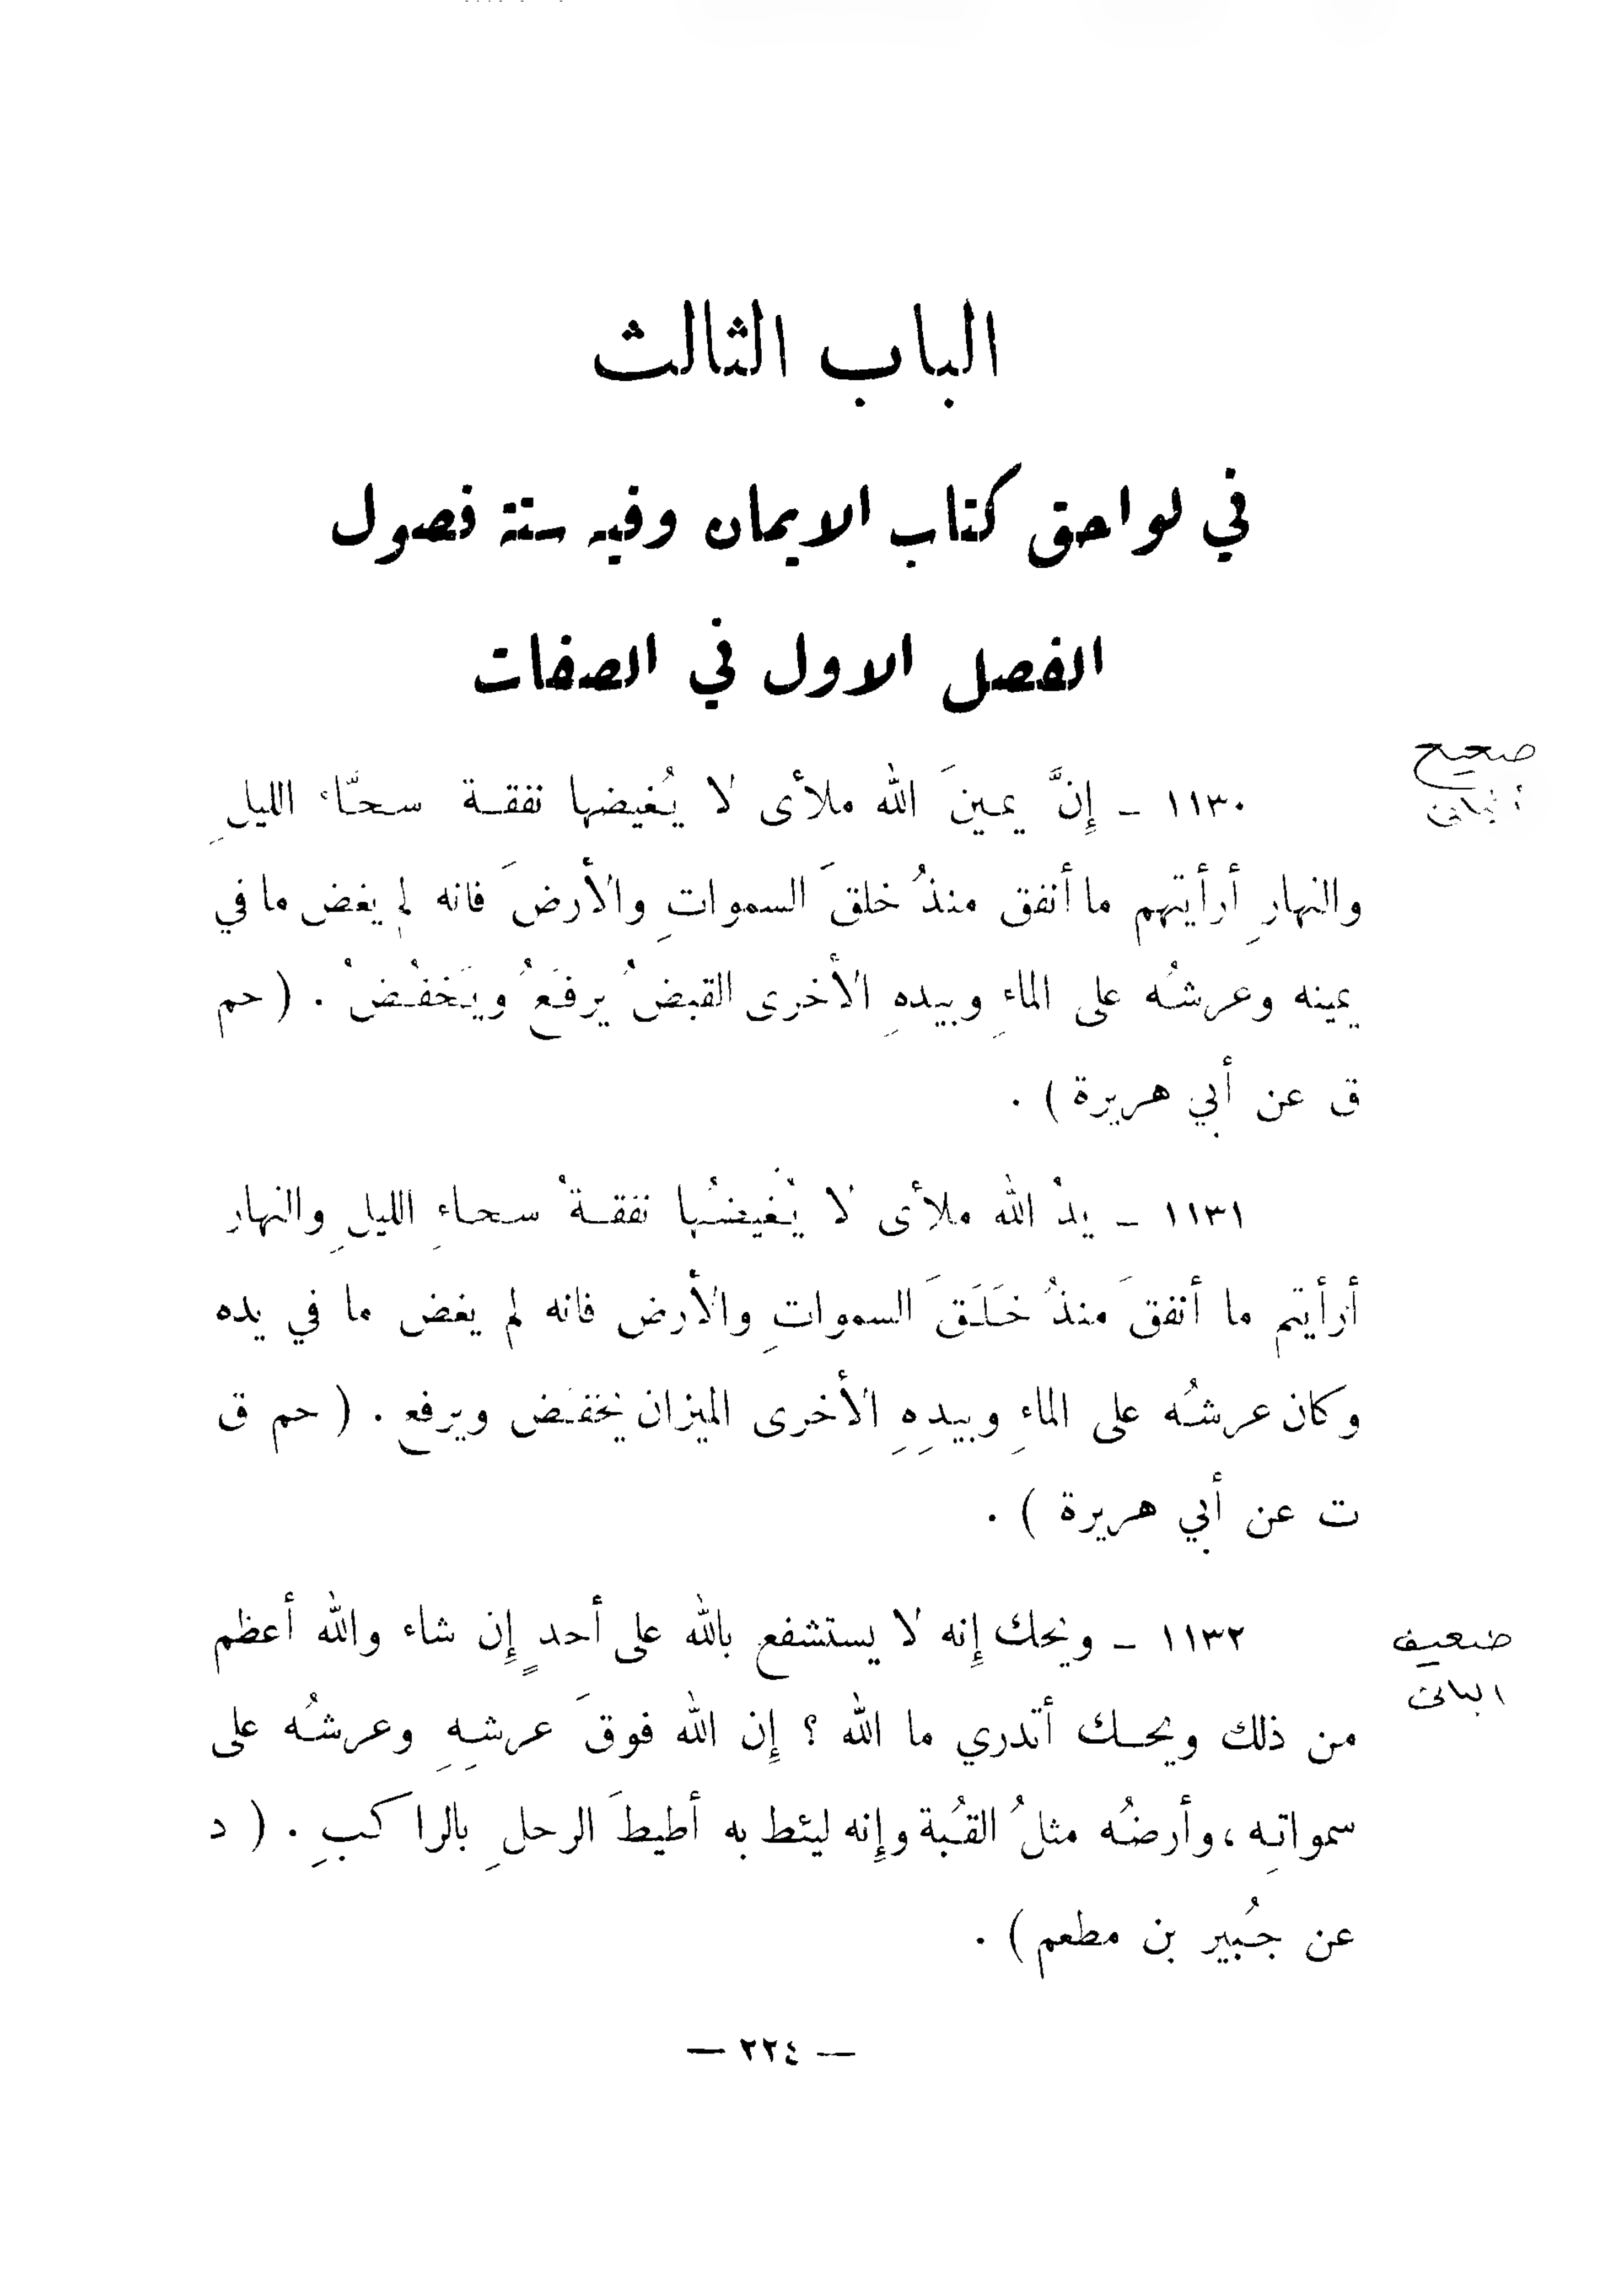 الباب الثالث
في لواحق كتاب الايمان وفيه ستة فصول
الفصل الاول في الصفات
صحيح
١١٣٠ ـ إِنَّ يمينَ الله ملأى لا يُغيضها نفقة سحّاء الليلِ
والنهارِ أرأيتهم ما أنفق منذُ خلقَ السمواتِ والأرضَ فانه لم يغض ما في
يمينه وعرشُه على الماءِ وبيدهِ الأخرى القبضُ يرفَعُ ويَخفُضُ . ( حم
ق عن أبي هريرة ) .
١١٣١ ـ يدُ الله ملأى لا يُغيضُها نفقةُ سحاءِ الليلِ والنهارِ
أرأيتم ما أنفقَ منذُ خَلَقَ السمواتِ والأرض فانه لم يغض ما في يده
وكان عرشُه على الماءِ وبيدِهِ الأخرى الميزان يخفض ويرفع . ( حم ق
ت عن أبي هريرة ) .
ضعيف
١١٣٢ ـ ويحك إِنه لا يستشفع بالله على أحدٍ إِن شاء والله أعظم
من ذلك ويحك أتدري ما الله ؟ إِن الله فوقَ عرشِهِ وعرشُه على
سمواتِه ، وأرضُه مثلُ القُبة وإِنه ليئط به أطيطَ الرحلِ بالراكبِ . ( د
عن جُبير بن مطعم ) .
— ٢٢٤ —